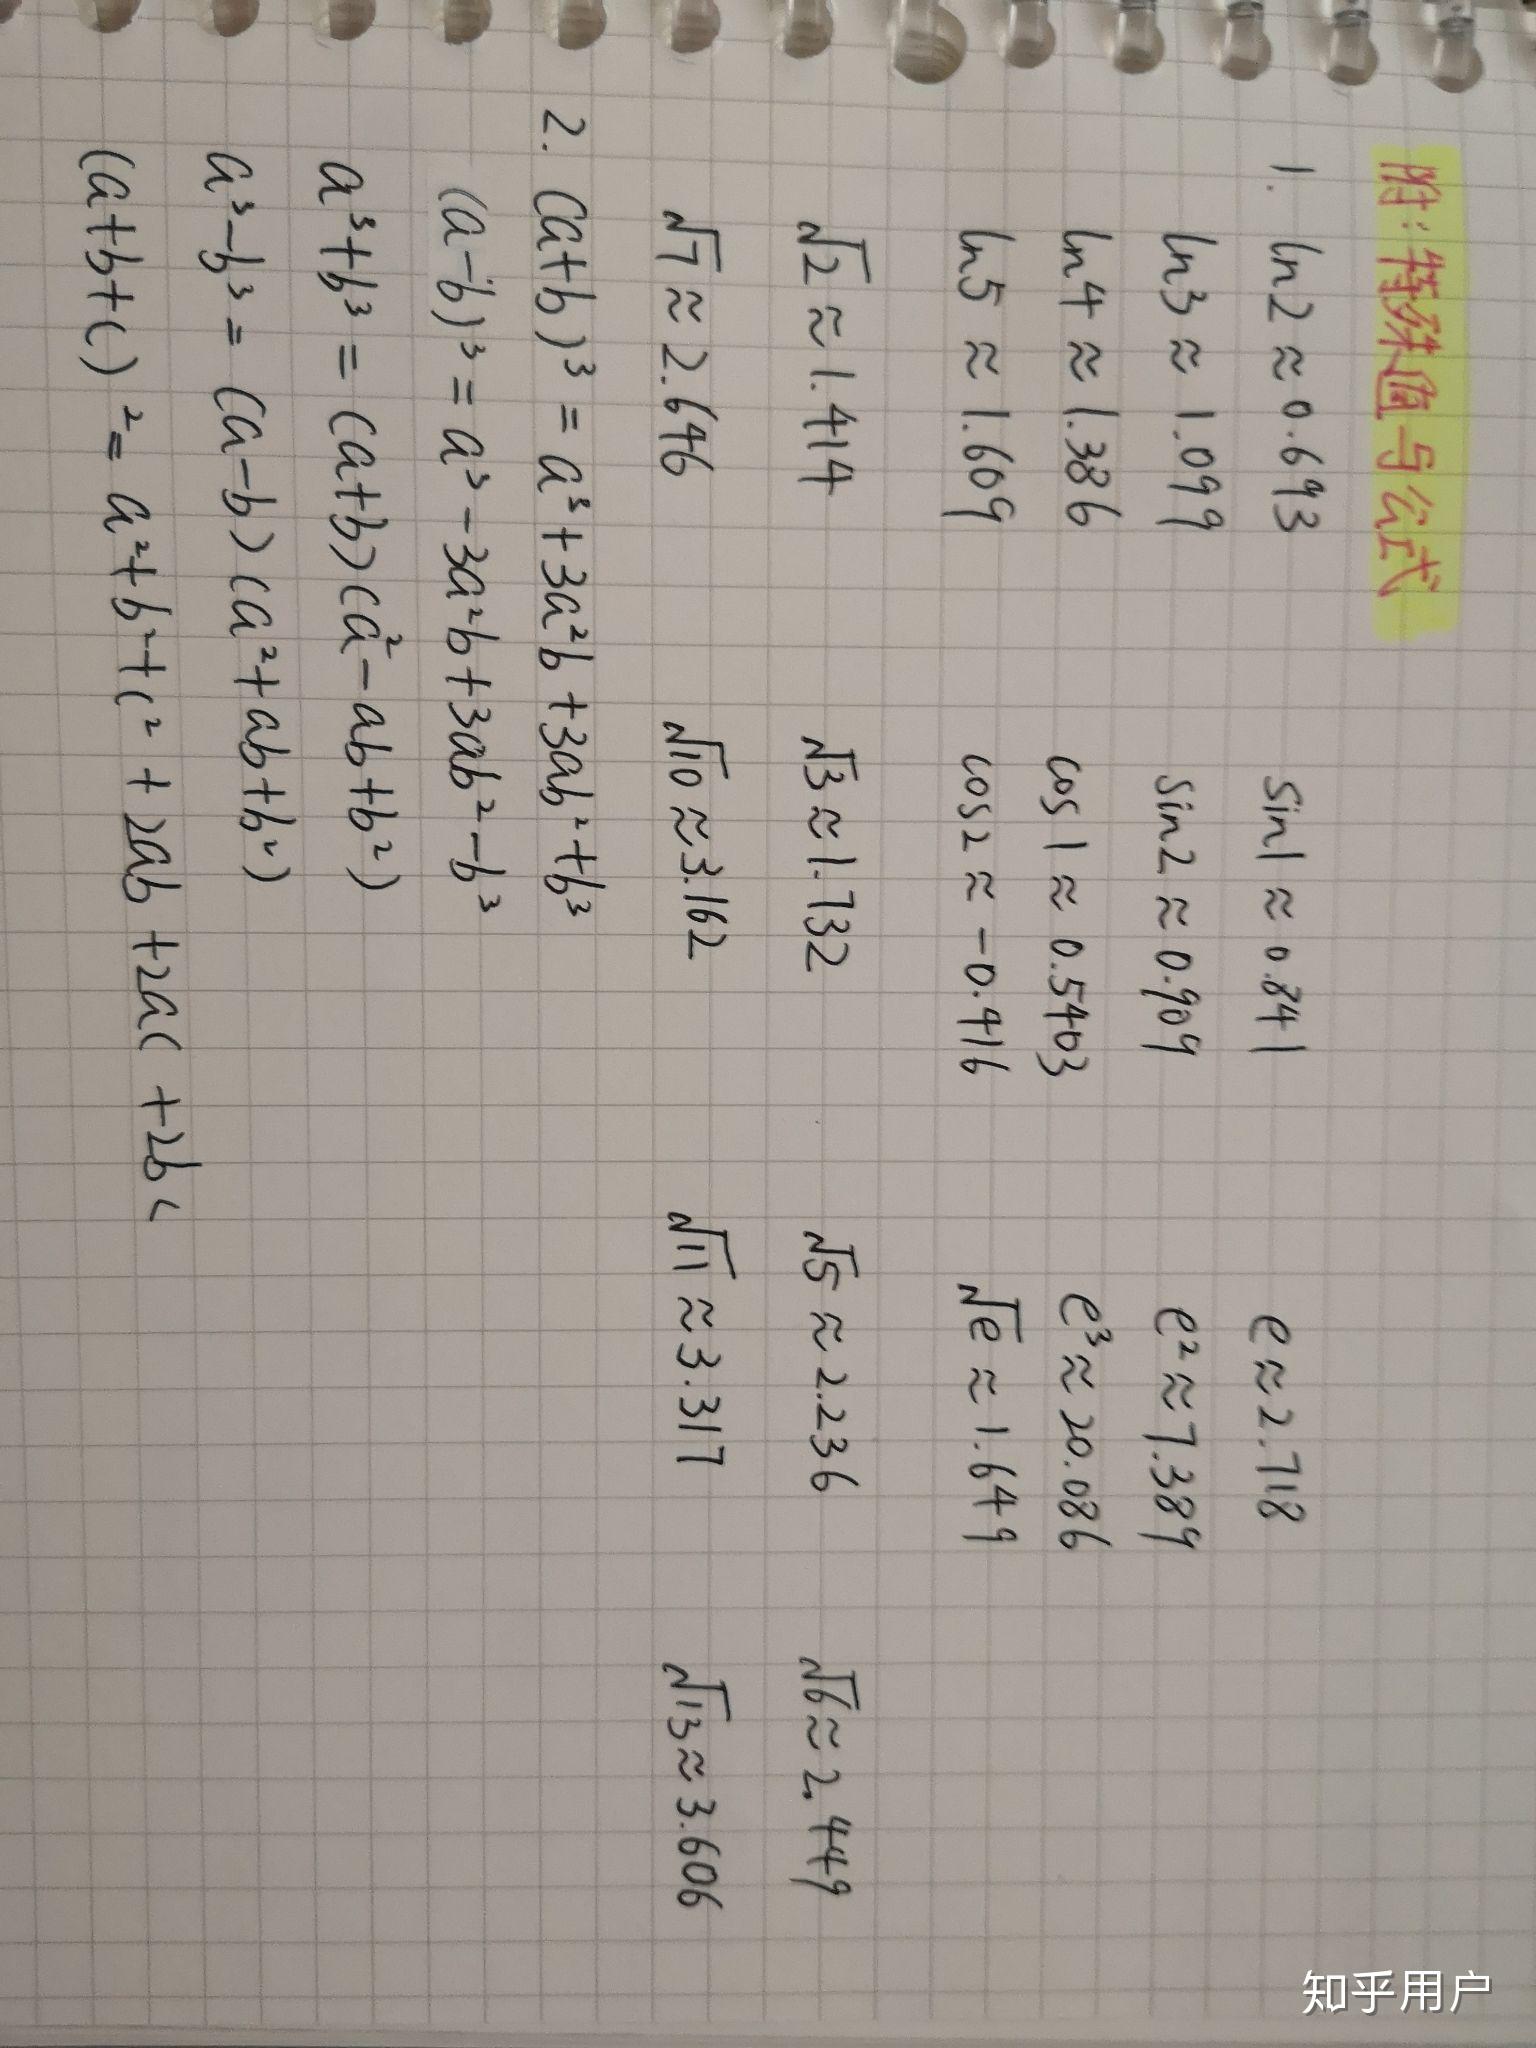 附:特殊值与公式
1. ln2≈0.693 sin1≈0.841 e≈2.718
ln3≈1.099 sin2≈0.909 e²≈7.389
ln4≈1.386 cos1≈0.5403 e³≈20.086
ln5≈1.609 cos2≈-0.416 √e≈1.649
√2≈1.414 √3≈1.732 √5≈2.236 √6≈2.449
√7≈2.646 √10≈3.162 √11≈3.317 √13≈3.606
2. (a+b)³=a³+3a²b+3ab²+b³
(a-b)³=a³-3a²b+3ab²-b³
a³+b³=(a+b)(a²-ab+b²)
a³-b³=(a-b)(a²+ab+b²)
(a+b+c)²=a²+b²+c²+2ab+2ac+2bc
知乎用户